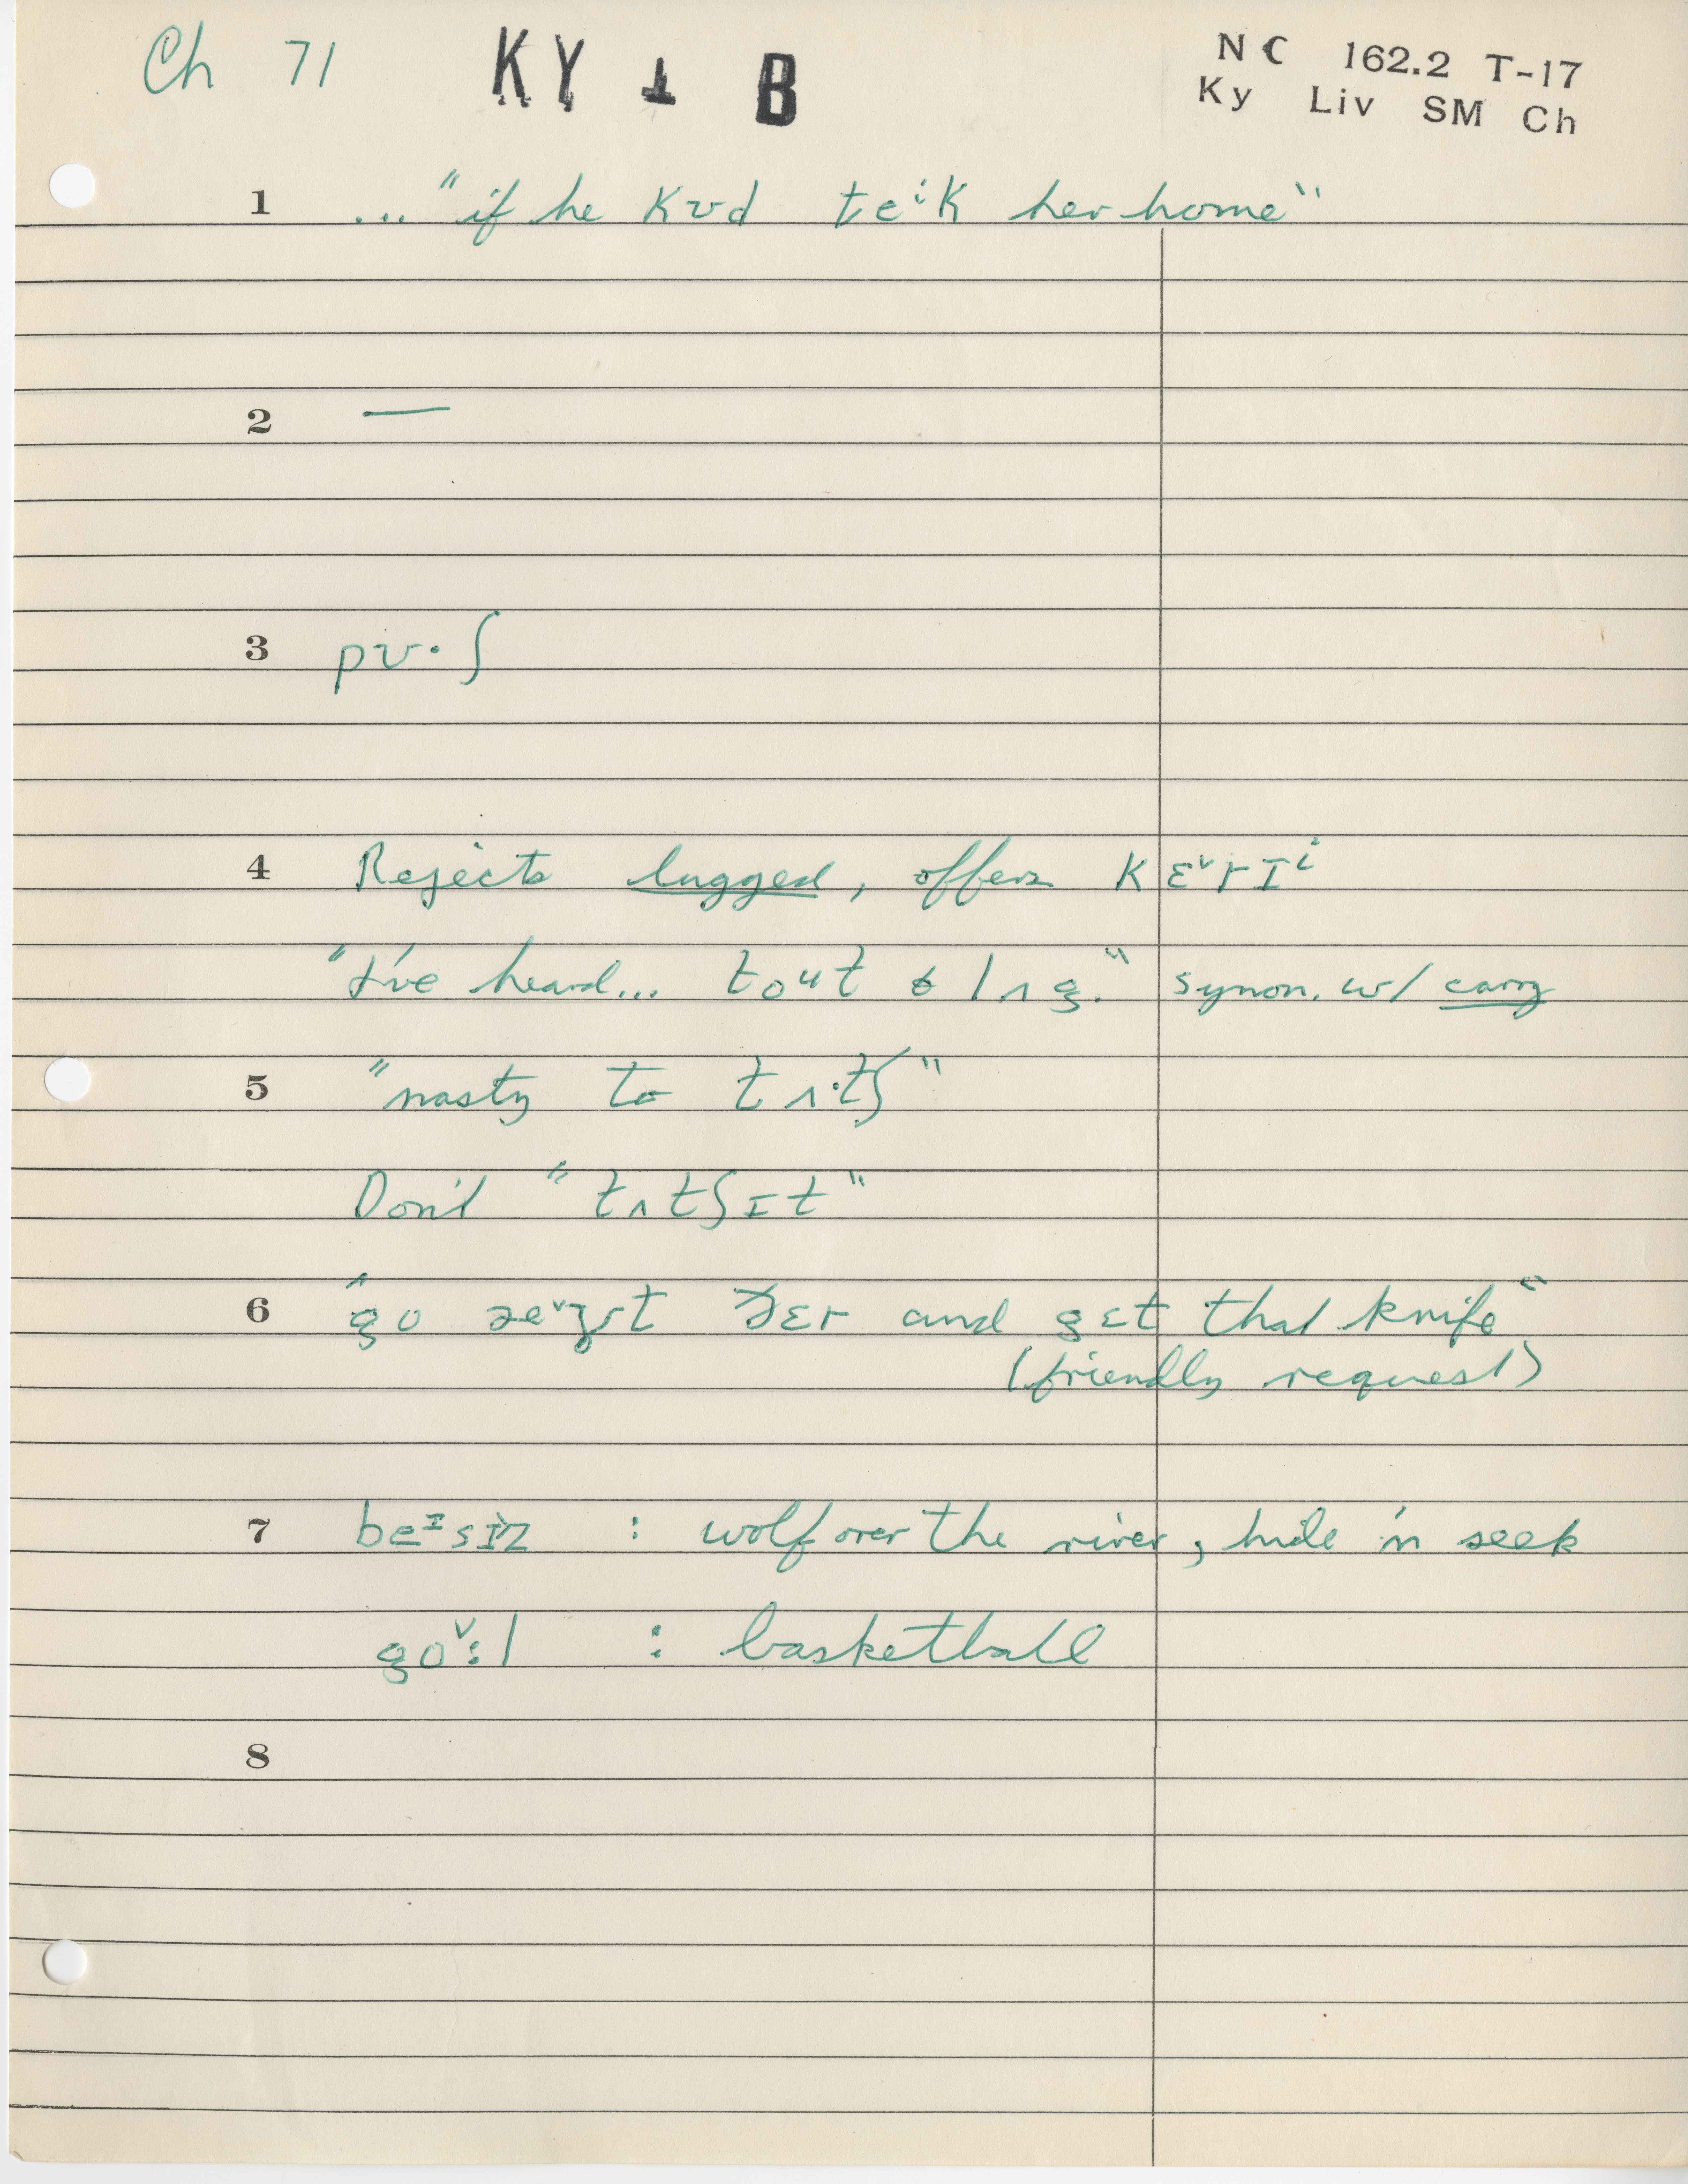 Ch 71 KY 1 B NC 162.2 T-17
Ky Liv SM Ch
1 ... "if he kʊd teⁱk her home"
2 —
3 pʊ·ʃ
4 Rejects lugged, offers kɛ˅rɪⁱ
"I've heard... toᵘt ɵ lʌg." synon. w/ carry
5 "nasty to tʌ·tʃ"
Don't "tʌtʃɪt"
6 "go ðɛr and gɛt that knife"
(friendly request)
7 beᶦsɪz : wolf over the river, hide 'n seek
go˅:l : basketball
8